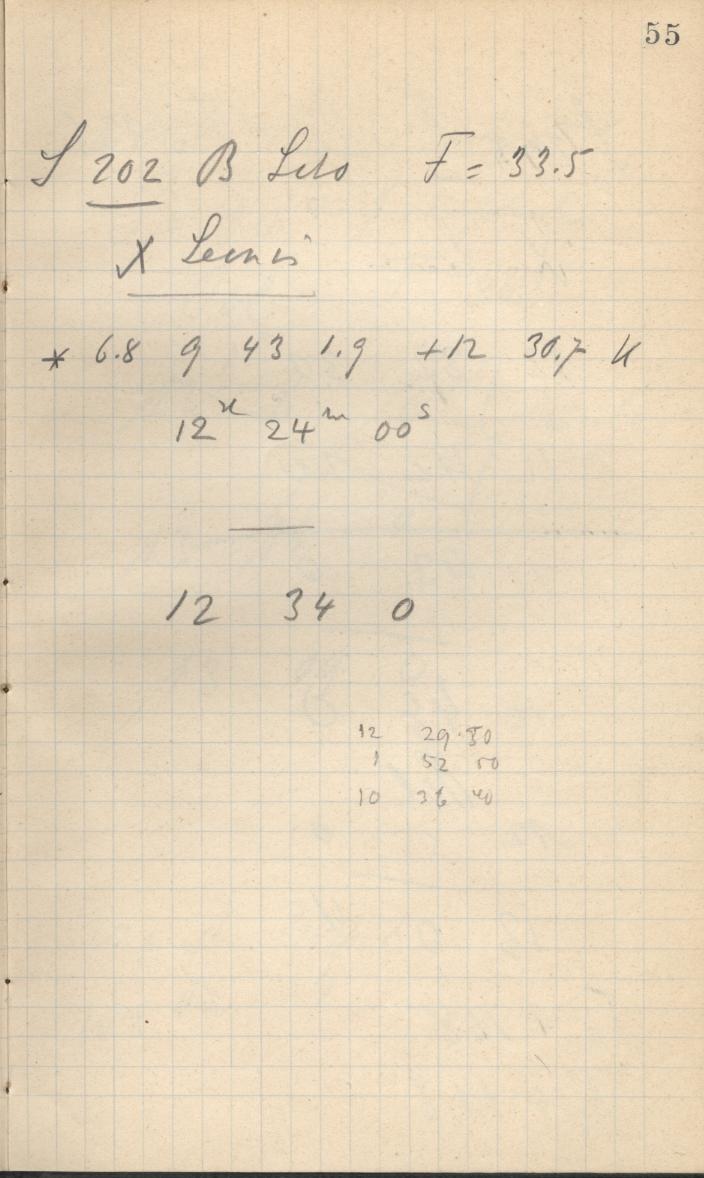 55
S 202 B F = 33.5
X Leonis
* 6.8 9 43 1.9 +12 30.7
12 24ᵐ 00ˢ
12 34 0
12 29.50
1 52 50
10 36 40